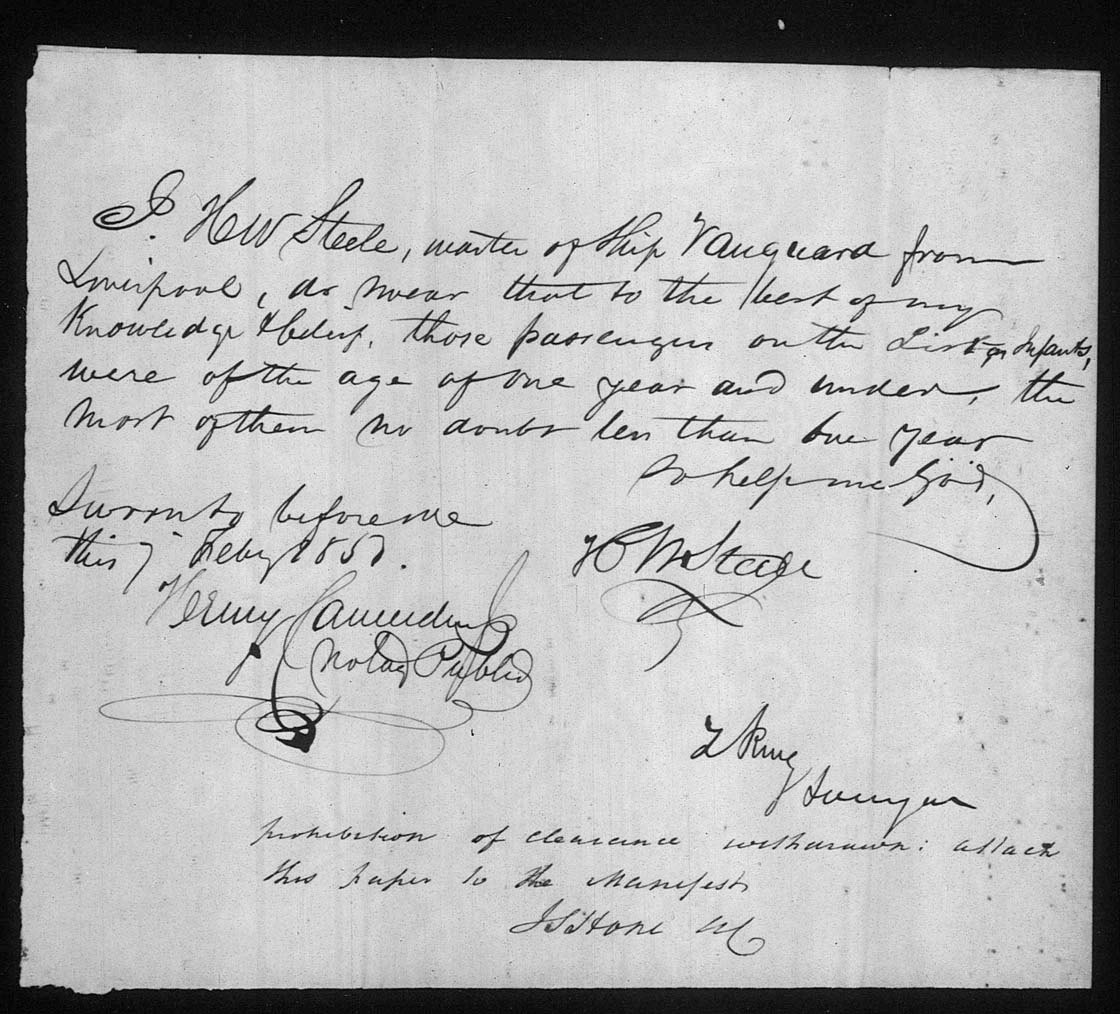 I. HW Steele, master of Ship Vanguard from
Liverpool, do swear that to the best of my
Knowledge & belief, those passengers on the List as Infants,
were of the age of one year and under, the
most of them no doubt less than one year
So help me God,
Sworn to before me
this 7 Feby 1851.
HW Steele
Henry
Notary Public
prohibition of clearance withdrawn: attach
this paper to the Manifest